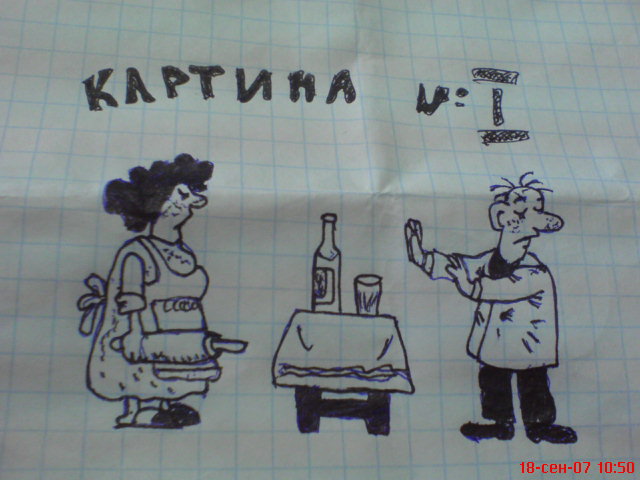 КАРТИНА №: I
18-сен-07 10:50